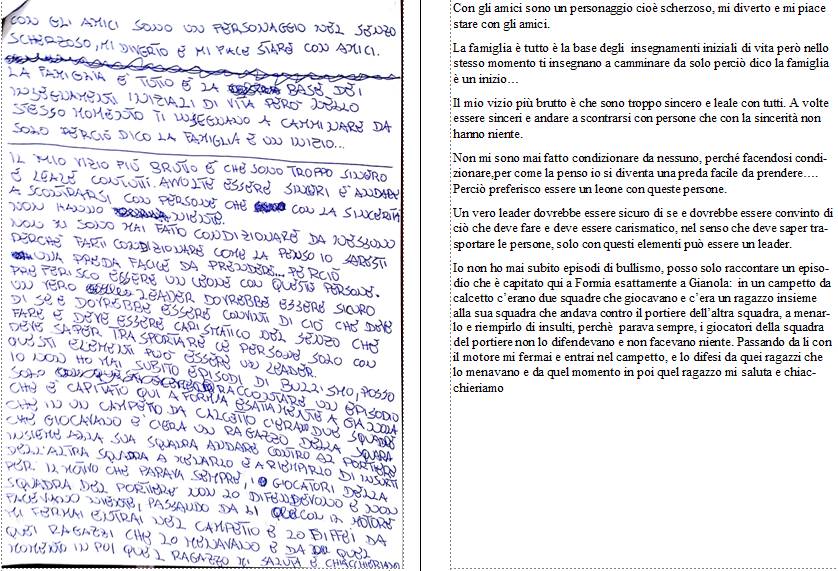 CON GLI AMICI SONO UN PERSONAGGIO NEL SENZO
SCHERZOSO, MI DIVERTO E MI PIACE STARE CON AMICI.
LA FAMIGLIA E TUTO E LA BASE DEI
INSEGNAMENTI INIZIALI DI VITA PERO NELLO
STESSO MOMENTO TI INSEGNANO A CAMMINARE DA
SOLO PERCIÒ DICO LA FAMIGLIA E UN INIZIO...
IL MIO VIZIO PIÙ BRUTTO E CHE SONO TROPPO SINCERO
E LEALE CON TUTTI. AVVOLTE ESSERE SINCERI E ANDARE
A SCONTRARSI CON PERSONE CHE CON LA SINCERITA
NON HANNO NIENTE.
NON MI SONO MAI FATTO CONDIZIONARE DA NESSUNO
PERCHÈ FARTI CONDIZIONARE COME LA PENSO IO SARESTI
UNA PREDA FACILE DA PRENDERE... PERCIÒ
PREFERISCO ESSERE UN LEONE CON QUESTE PERSONE.
UN VERO LEADER DOVREBBE ESSERE SICURO
DI SE E DOVREBBE ESSERE CONVINTI DI CIÒ CHE DEVE
FARE E DEVE ESSERE CARISMATICO NEL SENZO CHE
DEVE SAPER TRASPORTARE LE PERSONE SOLO CON
QUESTI ELEMENTI PUÒ ESSERE UN LEADER.
IO NON HO MAI SUBITO EPISODI DI BULLISMO, POSSO
SOLO RACCONTARE UN EPISODIO
CHE E CAPITATO QUI A FORMIA ESATTAMENTE A GIANOLA
CHE IN UN CAMPETTO DA CALCETTO C'ERANO DUE SQUADRE
CHE GIOCAVANO E C'ERA UN RAGAZZO DELLA SQUADRA
INSIEME ALLA SUA SQUADRA ANDARE CONTRO AL PORTIERE
DELL'ALTRA SQUADRA A MENARLO E A RIEMPIRLO DI INSULTI
PER IL MOTIVO CHE PARAVA SEMPRE, I GIOCATORI DELLA
SQUADRA DEL PORTIERE NON LO DIFENDEVONO E NON
FACEVANO NIENTE, PASSANDO DA LI CON IL MOTORE
MI FERMAI ENTRAI NEL CAMPETTO E LO DIFESI DA
QUEI RAGAZZI CHE LO MENAVANO E DA QUEL
MOMENTO IN POI QUEL RAGAZZO MI SALUTA E CHIACCHIERIAMO
Con gli amici sono un personaggio cioè scherzoso, mi diverto e mi piace
stare con gli amici.
La famiglia è tutto è la base degli insegnamenti iniziali di vita però nello
stesso momento ti insegnano a camminare da solo perciò dico la famiglia
è un inizio…
Il mio vizio più brutto è che sono troppo sincero e leale con tutti. A volte
essere sinceri e andare a scontrarsi con persone che con la sincerità non
hanno niente.
Non mi sono mai fatto condizionare da nessuno, perché facendosi condi-
zionare,per come la penso io si diventa una preda facile da prendere….
Perciò preferisco essere un leone con queste persone.
Un vero leader dovrebbe essere sicuro di se e dovrebbe essere convinto di
ciò che deve fare e deve essere carismatico, nel senso che deve saper tra-
sportare le persone, solo con questi elementi può essere un leader.
Io non ho mai subito episodi di bullismo, posso solo raccontare un episo-
dio che è capitato qui a Formia esattamente a Gianola: in un campetto da
calcetto c’erano due squadre che giocavano e c’era un ragazzo insieme
alla sua squadra che andava contro il portiere dell’altra squadra, a menar-
lo e riempirlo di insulti, perchè parava sempre, i giocatori della squadra
del portiere non lo difendevano e non facevano niente. Passando da li con
il motore mi fermai e entrai nel campetto, e lo difesi da quei ragazzi che
lo menavano e da quel momento in poi quel ragazzo mi saluta e chiac-
chieriamo